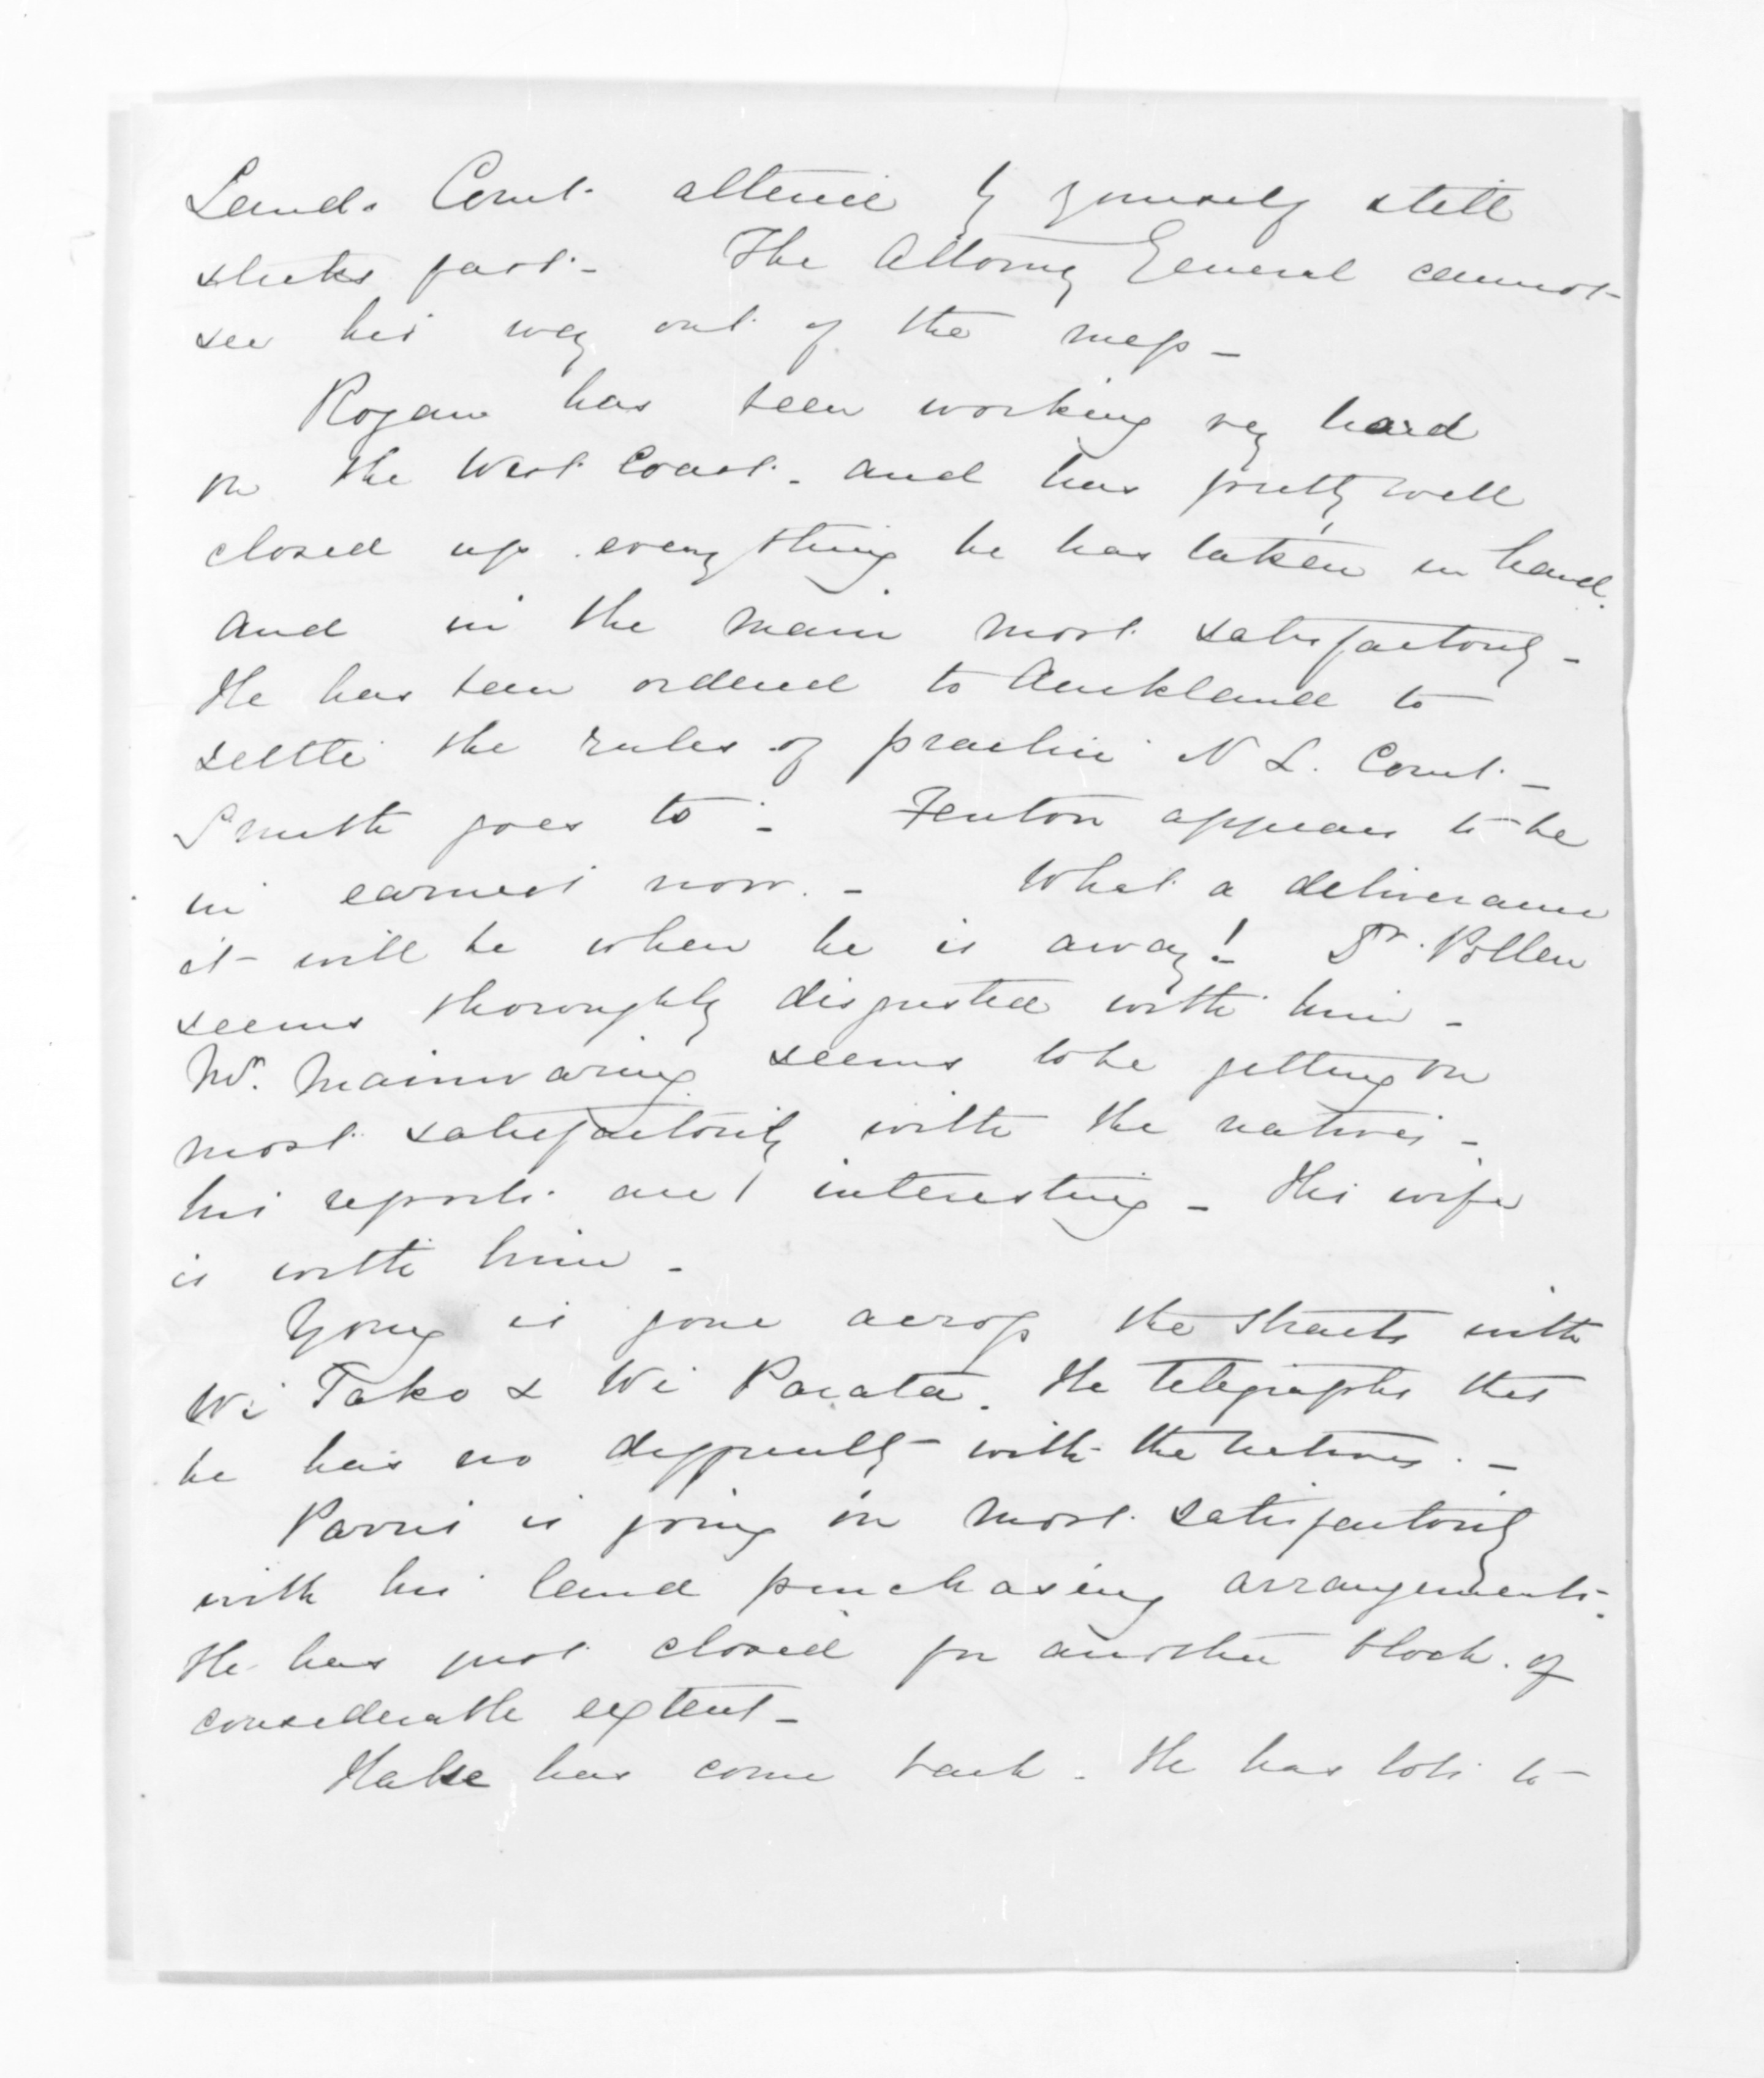 Land. Court. altered by yourself still
sticks fast - The Attorney General cannot
see his way out of the mess -
Rogan has been working very hard
on the West Coast. and has pretty well
closed up everything he has taken in hand.
and in the main most satisfactorily -
He has been ordered to Auckland to
settle the rules of practice N L. Court. -
Smith goes to - Fenton appears to be
in earnest now. - What a deliverance
it will be when he is away! Dr. Pollen
seems thoroughly disgusted with him -
Mr. Mainwaring seems to be getting on
most satisfactorily with the natives -
his reports are interesting - His wife
is with him -
Young is gone across the Straits with
Wi Tako & Wi Parata. He telegraphs that
he has no difficulty with the natives. -
Parris is going on most satisfactorily
with his land purchasing arrangements.
He has just closed for another block of
considerable extent -
Halse has come back - He has lots to